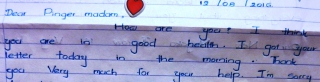 12 / 08 / 2010.
Dear Pinger madam,
How are you? I think
you are in good health. I got your
letter today in the morning. Thank
you Very much for your help. I'm sorry